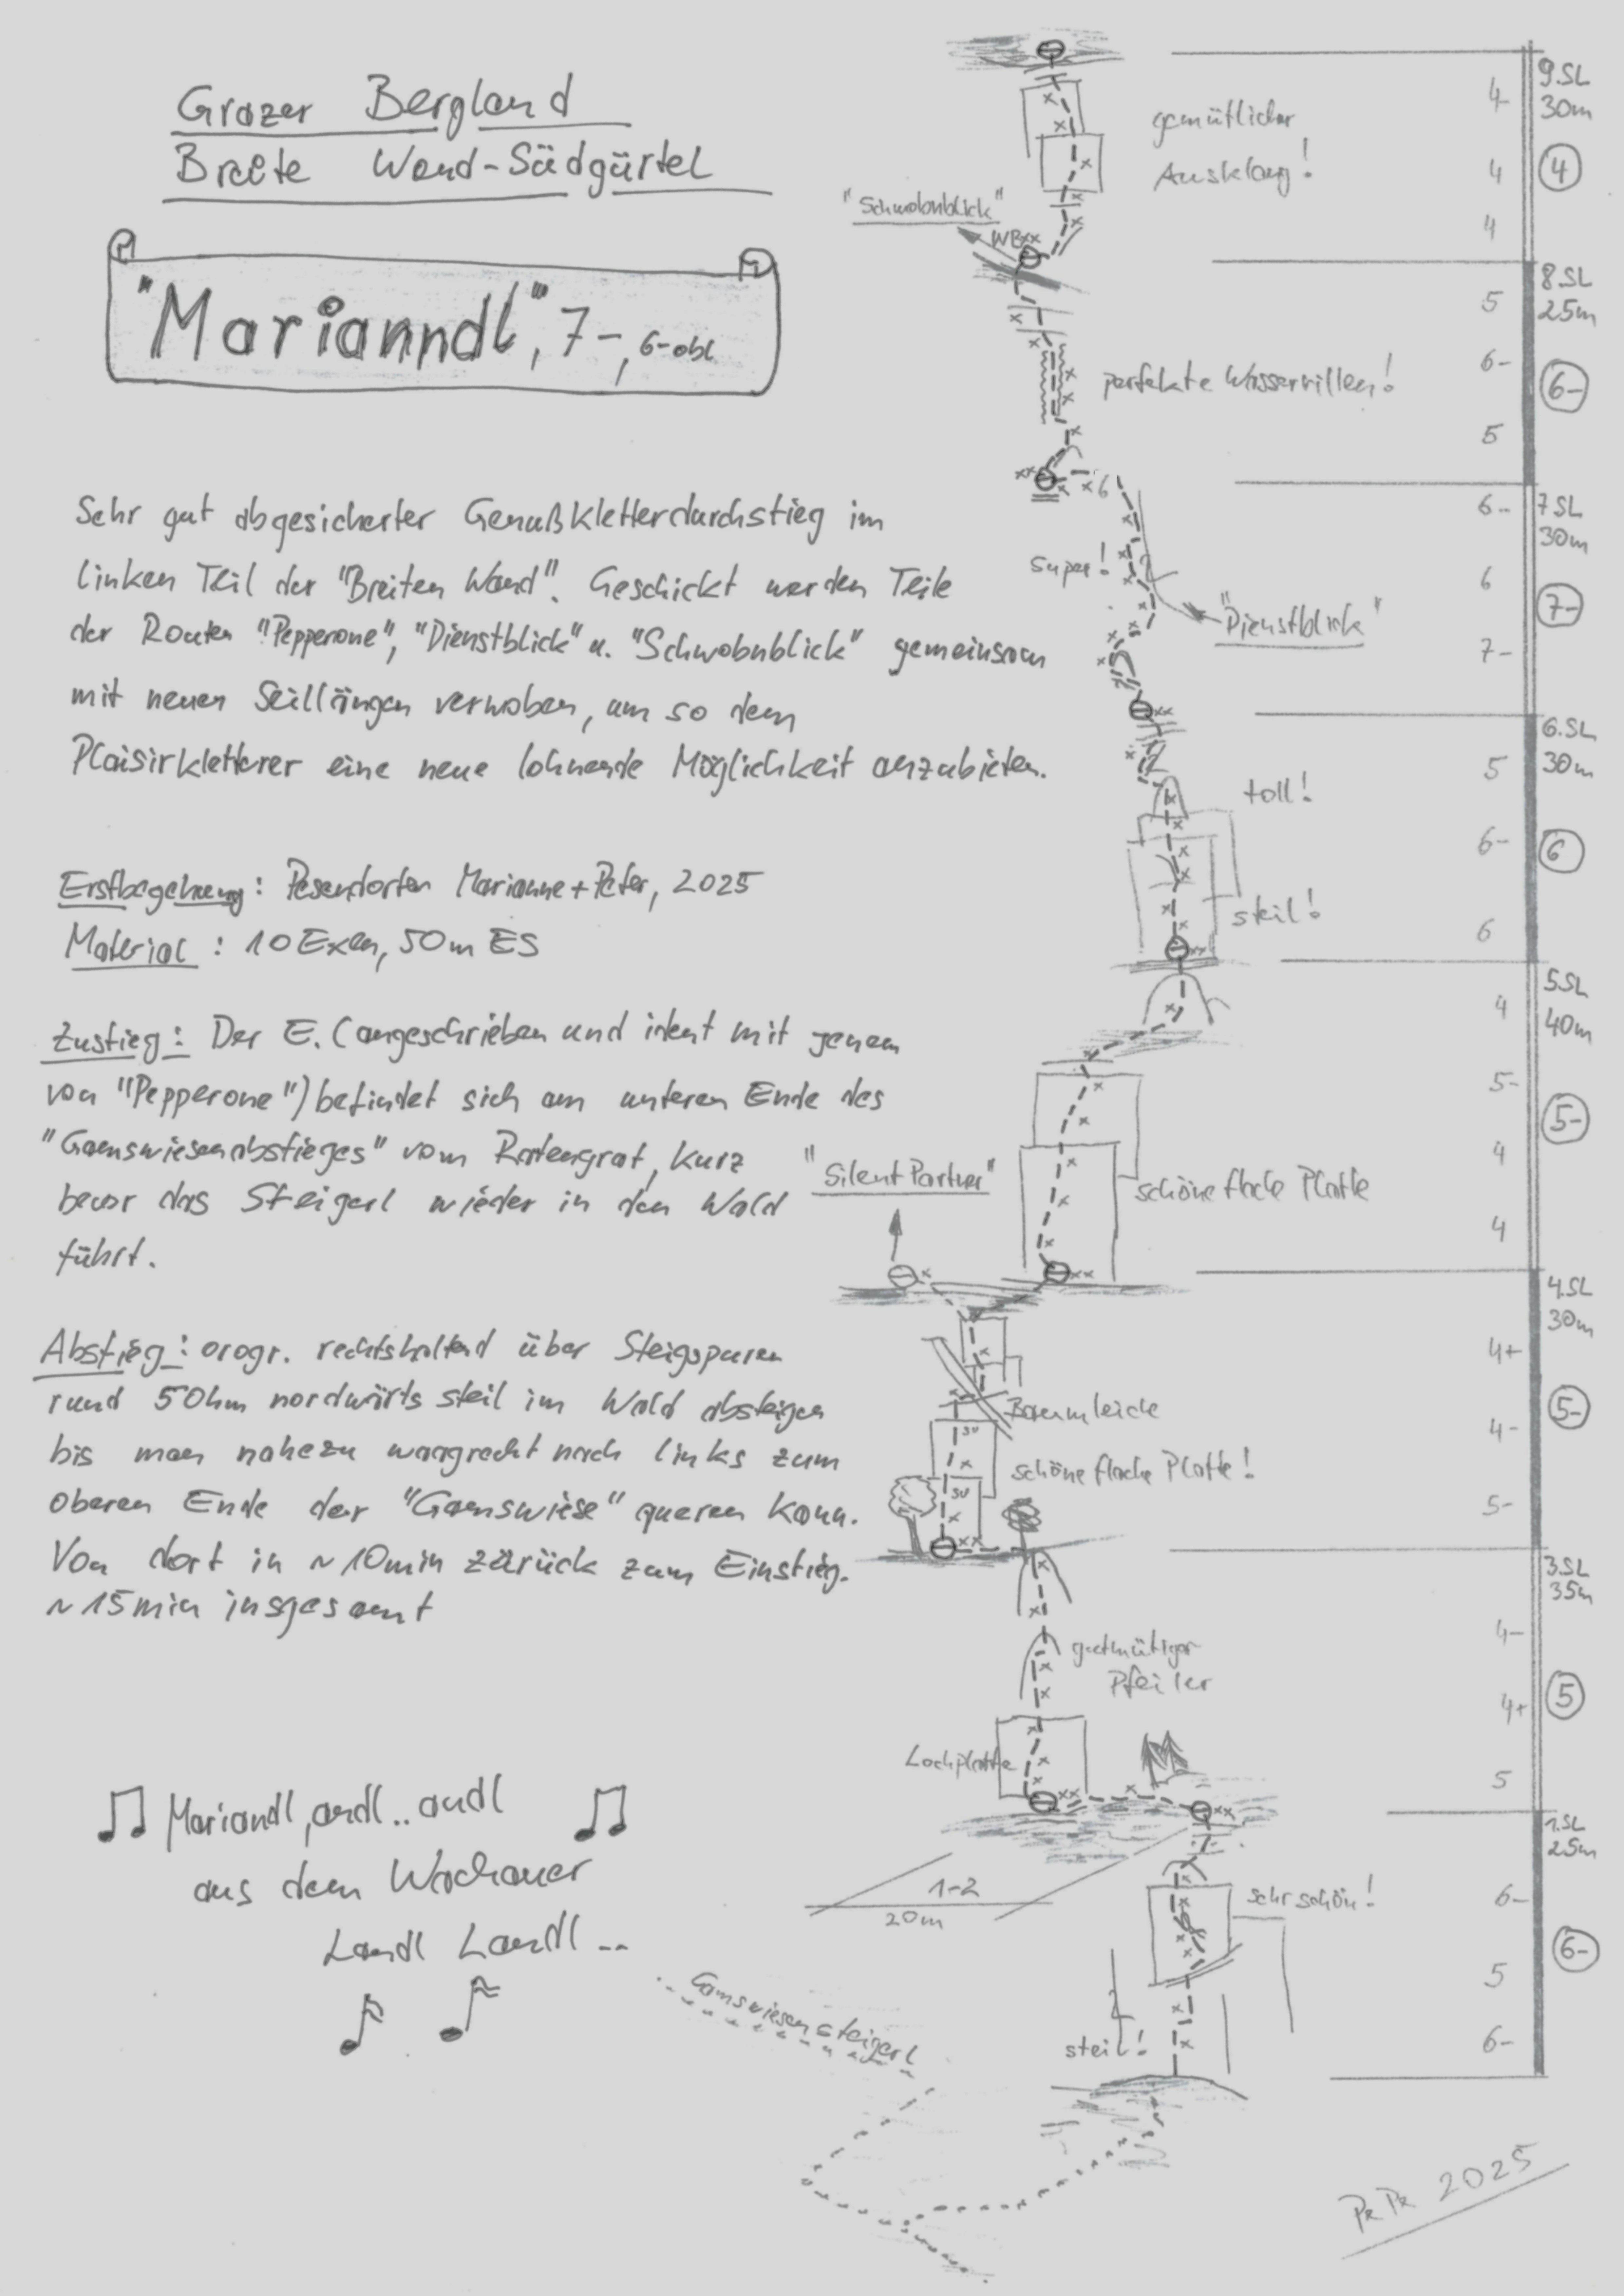 Grazer Bergland
Breite Wand-Südgürtel
"Marianndl", 7-, 6- obl.
Sehr gut abgesicherter Genußkletterdurchstieg im
linken Teil der "Breiten Wand". Geschickt werden Teile
der Routen "Pepperone", "Dienstblick" u. "Schwobnblick" gemeinsam
mit neuen Seillängen verwoben, um so dem
Plaisirkletterer eine neue lohnende Möglichkeit anzubieten.
Erstbegehung: Pesendorfer Marianne + Peter, 2025
Material: 10 Exen, 50m ES
Zustieg: Der E. (angeschrieben und ident mit jenem
von "Pepperone") befindet sich am unteren Ende des
"Gamswiesenabstieges" vom Ratengrat, kurz
bevor das Steigerl wieder in den Wald
führt.
Abstieg: orogr. rechtshaltend über Steigspuren
rund 50hm nordwärts steil im Wald absteigen
bis man nahezu waagrecht nach links zum
oberen Ende der "Gamswiese" queren kann.
Von dort in ~10min zürück zum Einstieg.
~15min insgesamt
Mariandl, andl.. andl
aus dem Wachauer
Landl Landl..
9.SL
30m
4
4-
4
4
gemütlicher
Ausklang!
"Schwobnblick"
WB xx
8.SL
25m
6-
5
6-
5
perfekte Wasserrillen!
7SL
30m
7-
6-
6
7-
6
Super!
"Dienstblick"
6.SL
30m
6
5
6-
6
toll!
steil!
5.SL
40m
5-
4
5-
4
4
schöne flache Platte
"Silent Partner"
4.SL
30m
5-
4+
4-
5-
Baumleiche
SU
schöne flache Platte!
SU
3.SL
35m
5
4-
4+
5
gutmütiger
Pfeiler
Lochplatte
1-2
20m
1.SL
25m
6-
6-
5
6-
sehr schön!
steil!
Gamswiesensteigerl
2025